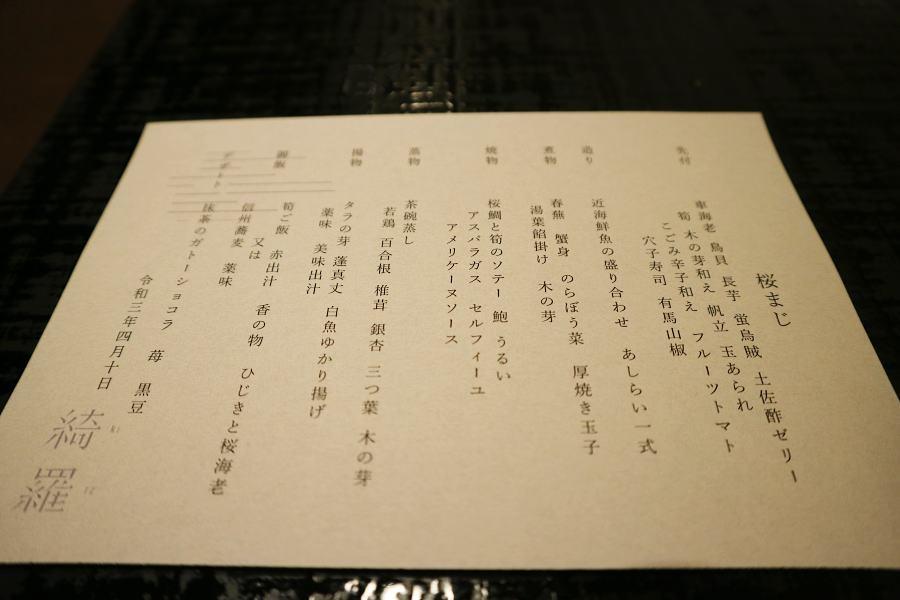 桜まじ
先付
車海老 鳥貝 長芋 蛍烏賊 土佐酢ゼリー
筍 木の芽和え 帆立 玉あられ
こごみ辛子和え フルーツトマト
穴子寿司 有馬山椒
造り
近海鮮魚の盛り合わせ あしらい一式
煮物
春蕪 蟹身 のらぼう菜 厚焼き玉子
湯葉餡掛け 木の芽
焼物
桜鯛と筍のソテー 鮑 うるい
アスパラガス セルフィーユ
アメリケーヌソース
蒸物
茶碗蒸し
若鶏 百合根 椎茸 銀杏 三つ葉 木の芽
揚物
タラの芽 蓬真丈 白魚ゆかり揚げ
薬味 美味出汁
御飯
筍ご飯 赤出汁 香の物 ひじきと桜海老
又は
信州蕎麦 薬味
デザート
抹茶のガトーショコラ 苺 黒豆
令和三年四月十日
綺 ki
羅 ra